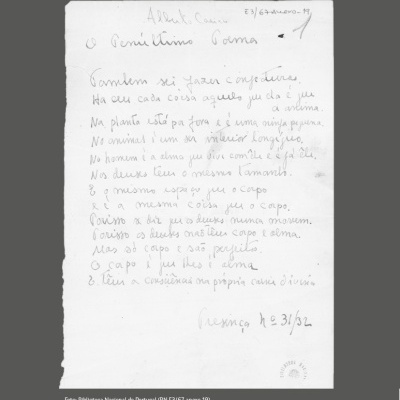 Albert. Caeiro
E3/67 anexo-19
1
O Penúltimo Poema
Tambem sei fazer conjecturas.
Ha em cada coisa aquilo que ela é que
a anima.
Na planta está por fora e é uma nimfa pequena.
No animal é um ser interior longinquo.
No homem é a alma que vive com elle e é já elle.
Nos deuses têm o mesmo tamanho
E o mesmo espaço que o corpo
E é a mesma coisa que o corpo.
Porisso se diz que os deuses nunca morrem.
Porisso os deuses não têm corpo e alma
Mas só corpo e são perfeitos.
O corpo é que lhes é alma
E têm a consciência na própria carne divina
Presença Nº 31/32
Foto: Biblioteca Nacional de Portugal (BN E3/67 anexo 19)